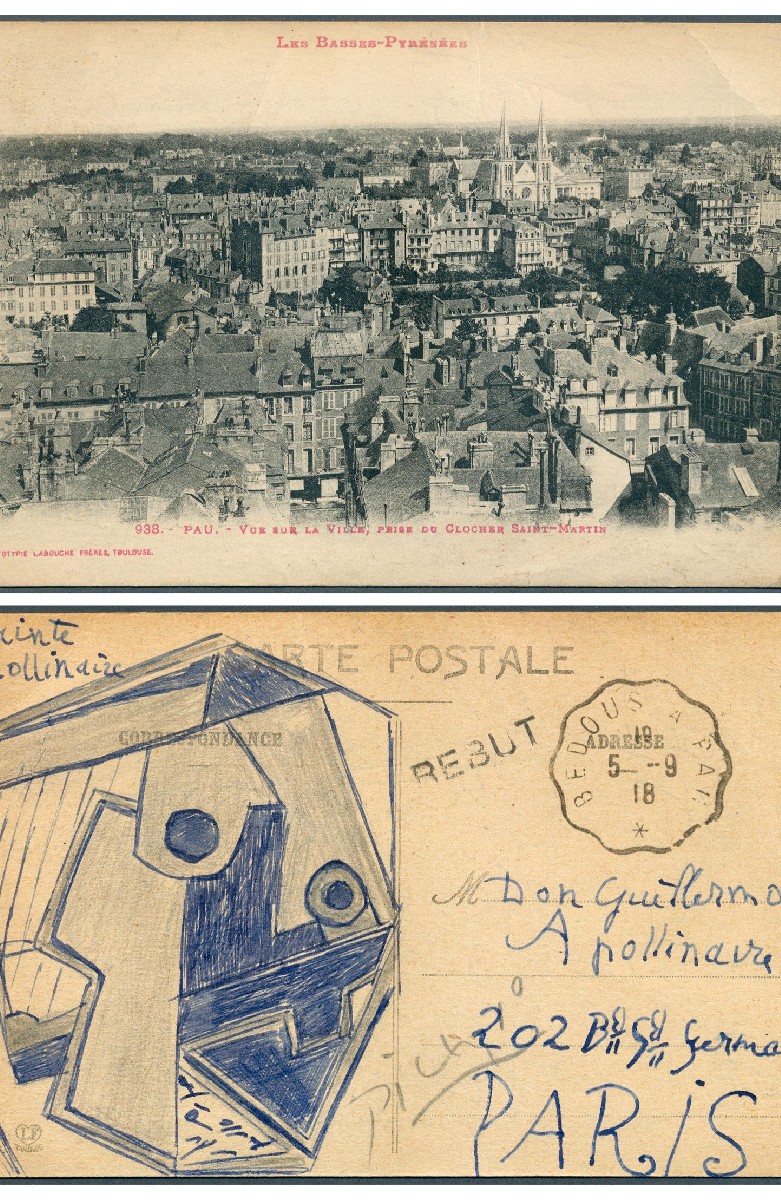 LES BASSES-PYRÉNÉES
938. - PAU. - VUE SUR LA VILLE, PRISE DU CLOCHER SAINT-MARTIN
OTYPIE LABOUCHE FRÈRES, TOULOUSE.
einte
ollinaire
CARTE POSTALE
CORRESPONDANCE
ADRESSE
REBUT
BEDOUS A PAU
19
5 -9
18
M Don Guillermo
Apollinaire
202 Bd St Germa
PARIS
LF